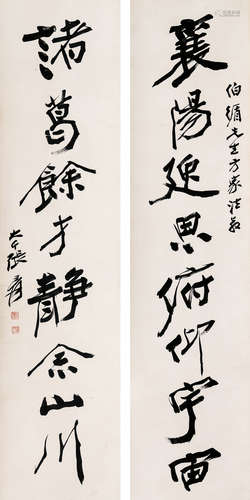 伯循先生方家法教
襄陽延思俯仰宇宙
諸葛餘才靜念山川
大千張爰